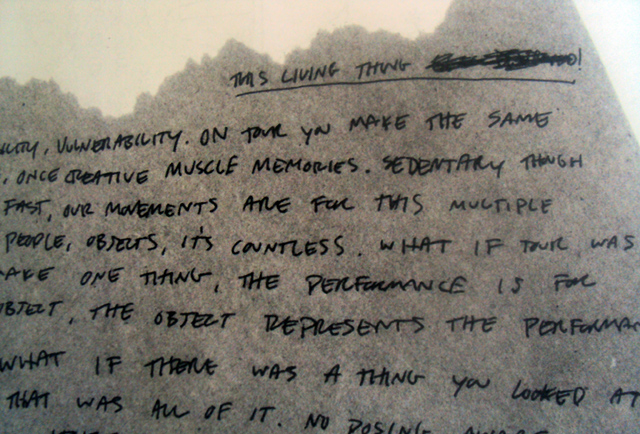 THIS LIVING THING !
VULNERABILITY. ON TOUR YOU MAKE THE SAME
, ONCE CREATIVE MUSCLE MEMORIES. SEDENTARY THOUGH
FAST, OUR MOVEMENTS ARE FOR THIS MULTIPLE
PEOPLE, OBJECTS, IT'S COUNTLESS. WHAT IF TOUR WAS
AKE ONE THING, THE PERFORMANCE IS FOR
BJECT, THE OBJECT REPRESENTS THE PERFORMAN
WHAT IF THERE WAS A THING YOU LOOKED AT
THAT WAS ALL OF IT. NO DOSING